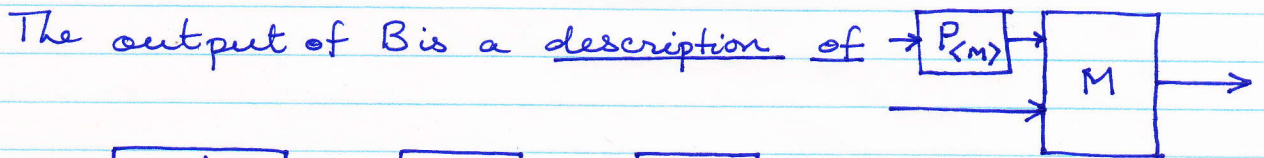 The output of B is a description of → P<M> → M →